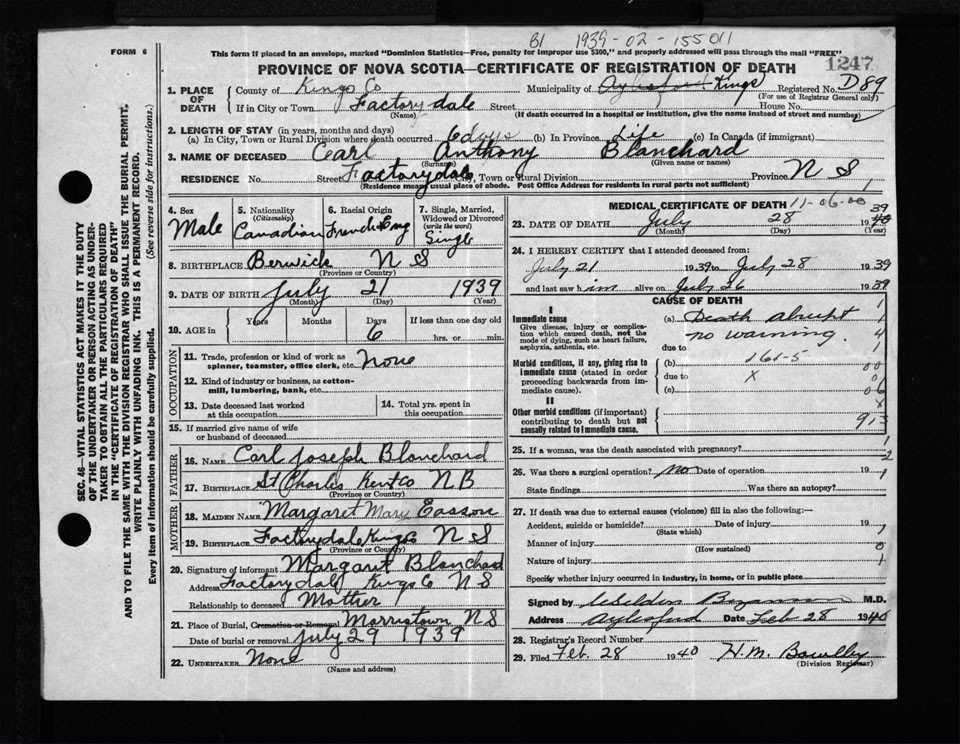 B1 1939-02-155011
FORM 6
This form if placed in an envelope, marked "Dominion Statistics—Free, penalty for improper use $300," and properly addressed will pass through the mail "FREE"
1247
PROVINCE OF NOVA SCOTIA—CERTIFICATE OF REGISTRATION OF DEATH
1. PLACE OF DEATH County of Kings Co Municipality of Aylesford Kings Registered No. D89
(For use of Registrar General only)
If in City or Town Factorydale Street House No.
(Name) (If death occurred in a hospital or institution, give the name instead of street and number)
2. LENGTH OF STAY (in years, months and days)
(a) In City, Town or Rural Division where death occurred 6 days (b) In Province Life (c) In Canada (if immigrant)
3. NAME OF DECEASED Carl Anthony Blanchard
(Surname) (Given name or names)
RESIDENCE No. Street Factorydale City, Town or Rural Division Province N S
(Residence means usual place of abode. Post Office Address for residents in rural parts not sufficient)
4. Sex Male
5. Nationality (Citizenship) Canadian
6. Racial Origin French & Eng
7. Single, Married, Widowed or Divorced (write the word) Single
8. BIRTHPLACE Berwick N S
(Province or Country)
9. DATE OF BIRTH July 21 1939
(Month) (Day) (Year)
10. AGE in Years Months Days 6 If less than one day old hrs. or min.
OCCUPATION
11. Trade, profession or kind of work as spinner, teamster, office clerk, etc. None
12. Kind of industry or business, as cotton-mill, lumbering, bank, etc.
13. Date deceased last worked at this occupation
14. Total yrs. spent in this occupation
15. If married give name of wife or husband of deceased
FATHER
16. NAME Carl Joseph Blanchard
17. BIRTHPLACE St Charles Kent Co N B
(Province or Country)
MOTHER
18. MAIDEN NAME Margaret Mary Easson
19. BIRTHPLACE Factorydale Kings Co N S
(Province or Country)
20. Signature of informant Margaret Blanchard
Address Factorydale Kings Co N S
Relationship to deceased Mother
21. Place of Burial, Cremation or Removal Morristown N S
Date of burial or removal July 29 1939
22. UNDERTAKER None
(Name and address)
MEDICAL CERTIFICATE OF DEATH 11-06-00
23. DATE OF DEATH July 28 1940 39
(Month) (Day) (Year)
24. I HEREBY CERTIFY that I attended deceased from:
July 21 1939 to July 28 1939
and last saw him alive on July 26 1939
CAUSE OF DEATH
I
Immediate cause (a) Death abrupt
Give disease, injury or complication which caused death, not the mode of dying, such as heart failure, asphyxia, asthenia, etc.
no warning.
due to
Morbid conditions, if any, giving rise to Immediate cause (stated in order proceeding backwards from immediate cause).
(b) 161-5
due to X
(c)
II
Other morbid conditions (if important) contributing to death but not causally related to Immediate cause.
913
25. If a woman, was the death associated with pregnancy?
26. Was there a surgical operation? No Date of operation 19
State findings Was there an autopsy?
27. If death was due to external causes (violence) fill in also the following:—
Accident, suicide or homicide? Date of injury 19
(State which)
Manner of injury
(How sustained)
Nature of injury
Specify whether injury occurred in industry, in home, or in public place
Signed by M.D.
Address Aylesford Date Feb 28 1940
28. Registrar's Record Number
29. Filed Feb. 28 1940 H. M.
(Division Registrar)
SEC. 46—VITAL STATISTICS ACT MAKES IT THE DUTY
OF THE UNDERTAKER OR PERSON ACTING AS UNDER-
TAKER TO OBTAIN ALL THE PARTICULARS REQUIRED
IN THE "CERTIFICATE OF REGISTRATION OF DEATH"
AND TO FILE THE SAME WITH THE DIVISION REGISTRAR WHO SHALL ISSUE THE BURIAL PERMIT.
WRITE PLAINLY WITH UNFADING INK. THIS IS A PERMANENT RECORD.
Every item of Information should be carefully supplied. (See reverse side for instructions.)